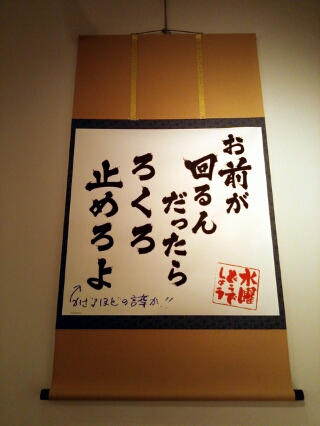 お前が
回るん
だったら
ろくろ
止めろよ
かけるほどの言葉か!!
水曜
どうで
しょう